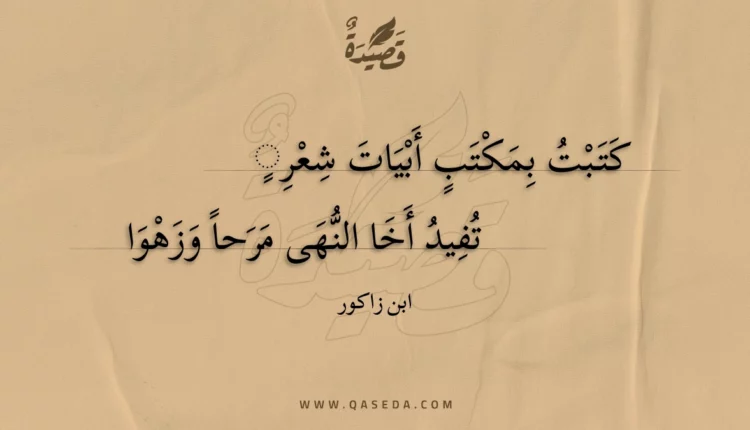 قَصِيدَةٌ
كَتَبْتُ بِمَكْتَبٍ أَبْيَاتَ شِعْرِ ٍ
تُفِيدُ أَخَا النُّهَى مَرَحاً وَزَهْوَا
ابن زاكور
WWW.QASEDA.COM